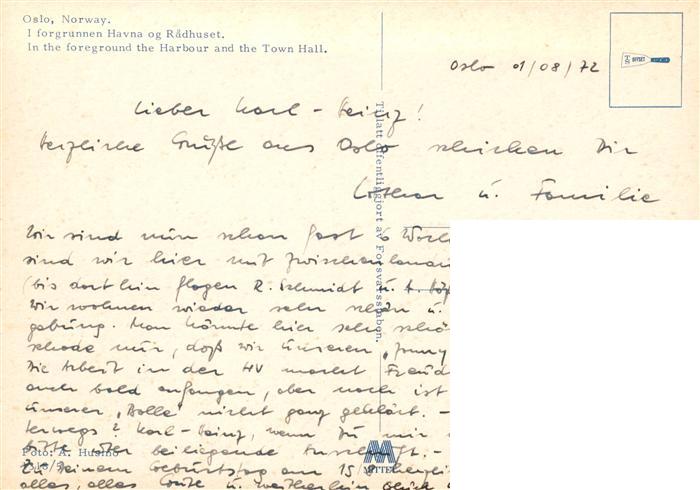 Oslo, Norway.
I forgrunnen Havna og Rådhuset.
In the foreground the Harbour and the Town Hall.
OFFSET
Oslo 01/08/72
Lieber Karl-Heinz!
Herzliche Grüße aus Oslo schicken Dir
Lothar u. Familie
Wir sind nun schon fast 6 Woch
sind wir hier mit Zwischenlan
(bis dorthin flogen R. Schmidt u.
Wir wohnen wieder sehr schön u.
gebung. Man könnte hier sehr schö
schade nur, daß wir unseren
Die Arbeit in der HV macht Freud
auch bald anfangen, aber noch ist
unserer nicht ganz geklärt. –
terwegs? Karl-Heinz, wenn Du mir
bitte über beiliegende Anschrift. –
Zu Deinem Geburtstag am 15. herzli
alles, alles Gute u. weiterhin Glück
Tillatt offentliggjort av Forsvarsstaben.
Foto: A. Husmo
MITTET